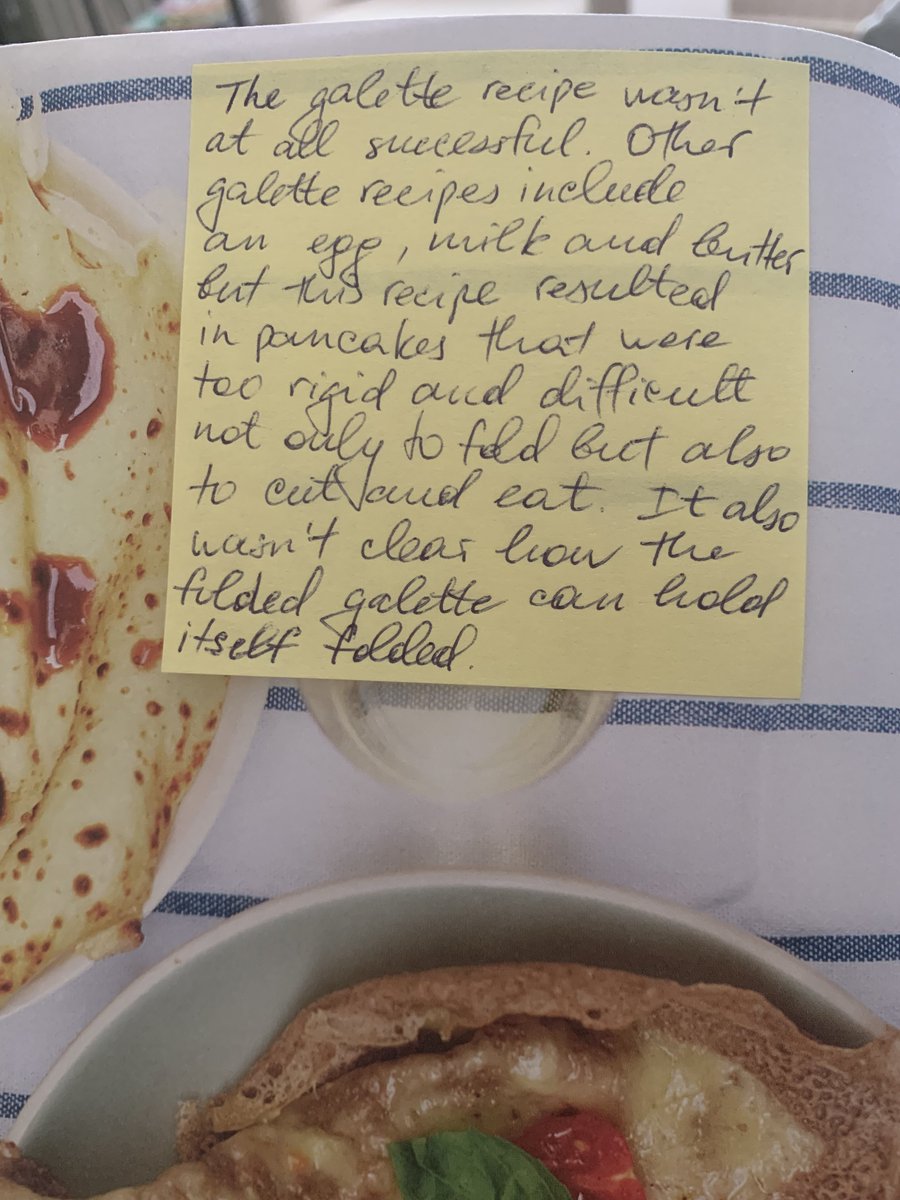 The galette recipe wasn't
at all successful. Other
galette recipes include
an egg, milk and butter
but this recipe resulted
in pancakes that were
too rigid and difficult
not only to fold but also
to cut and eat. It also
wasn't clear how the
folded galette can hold
itself folded.